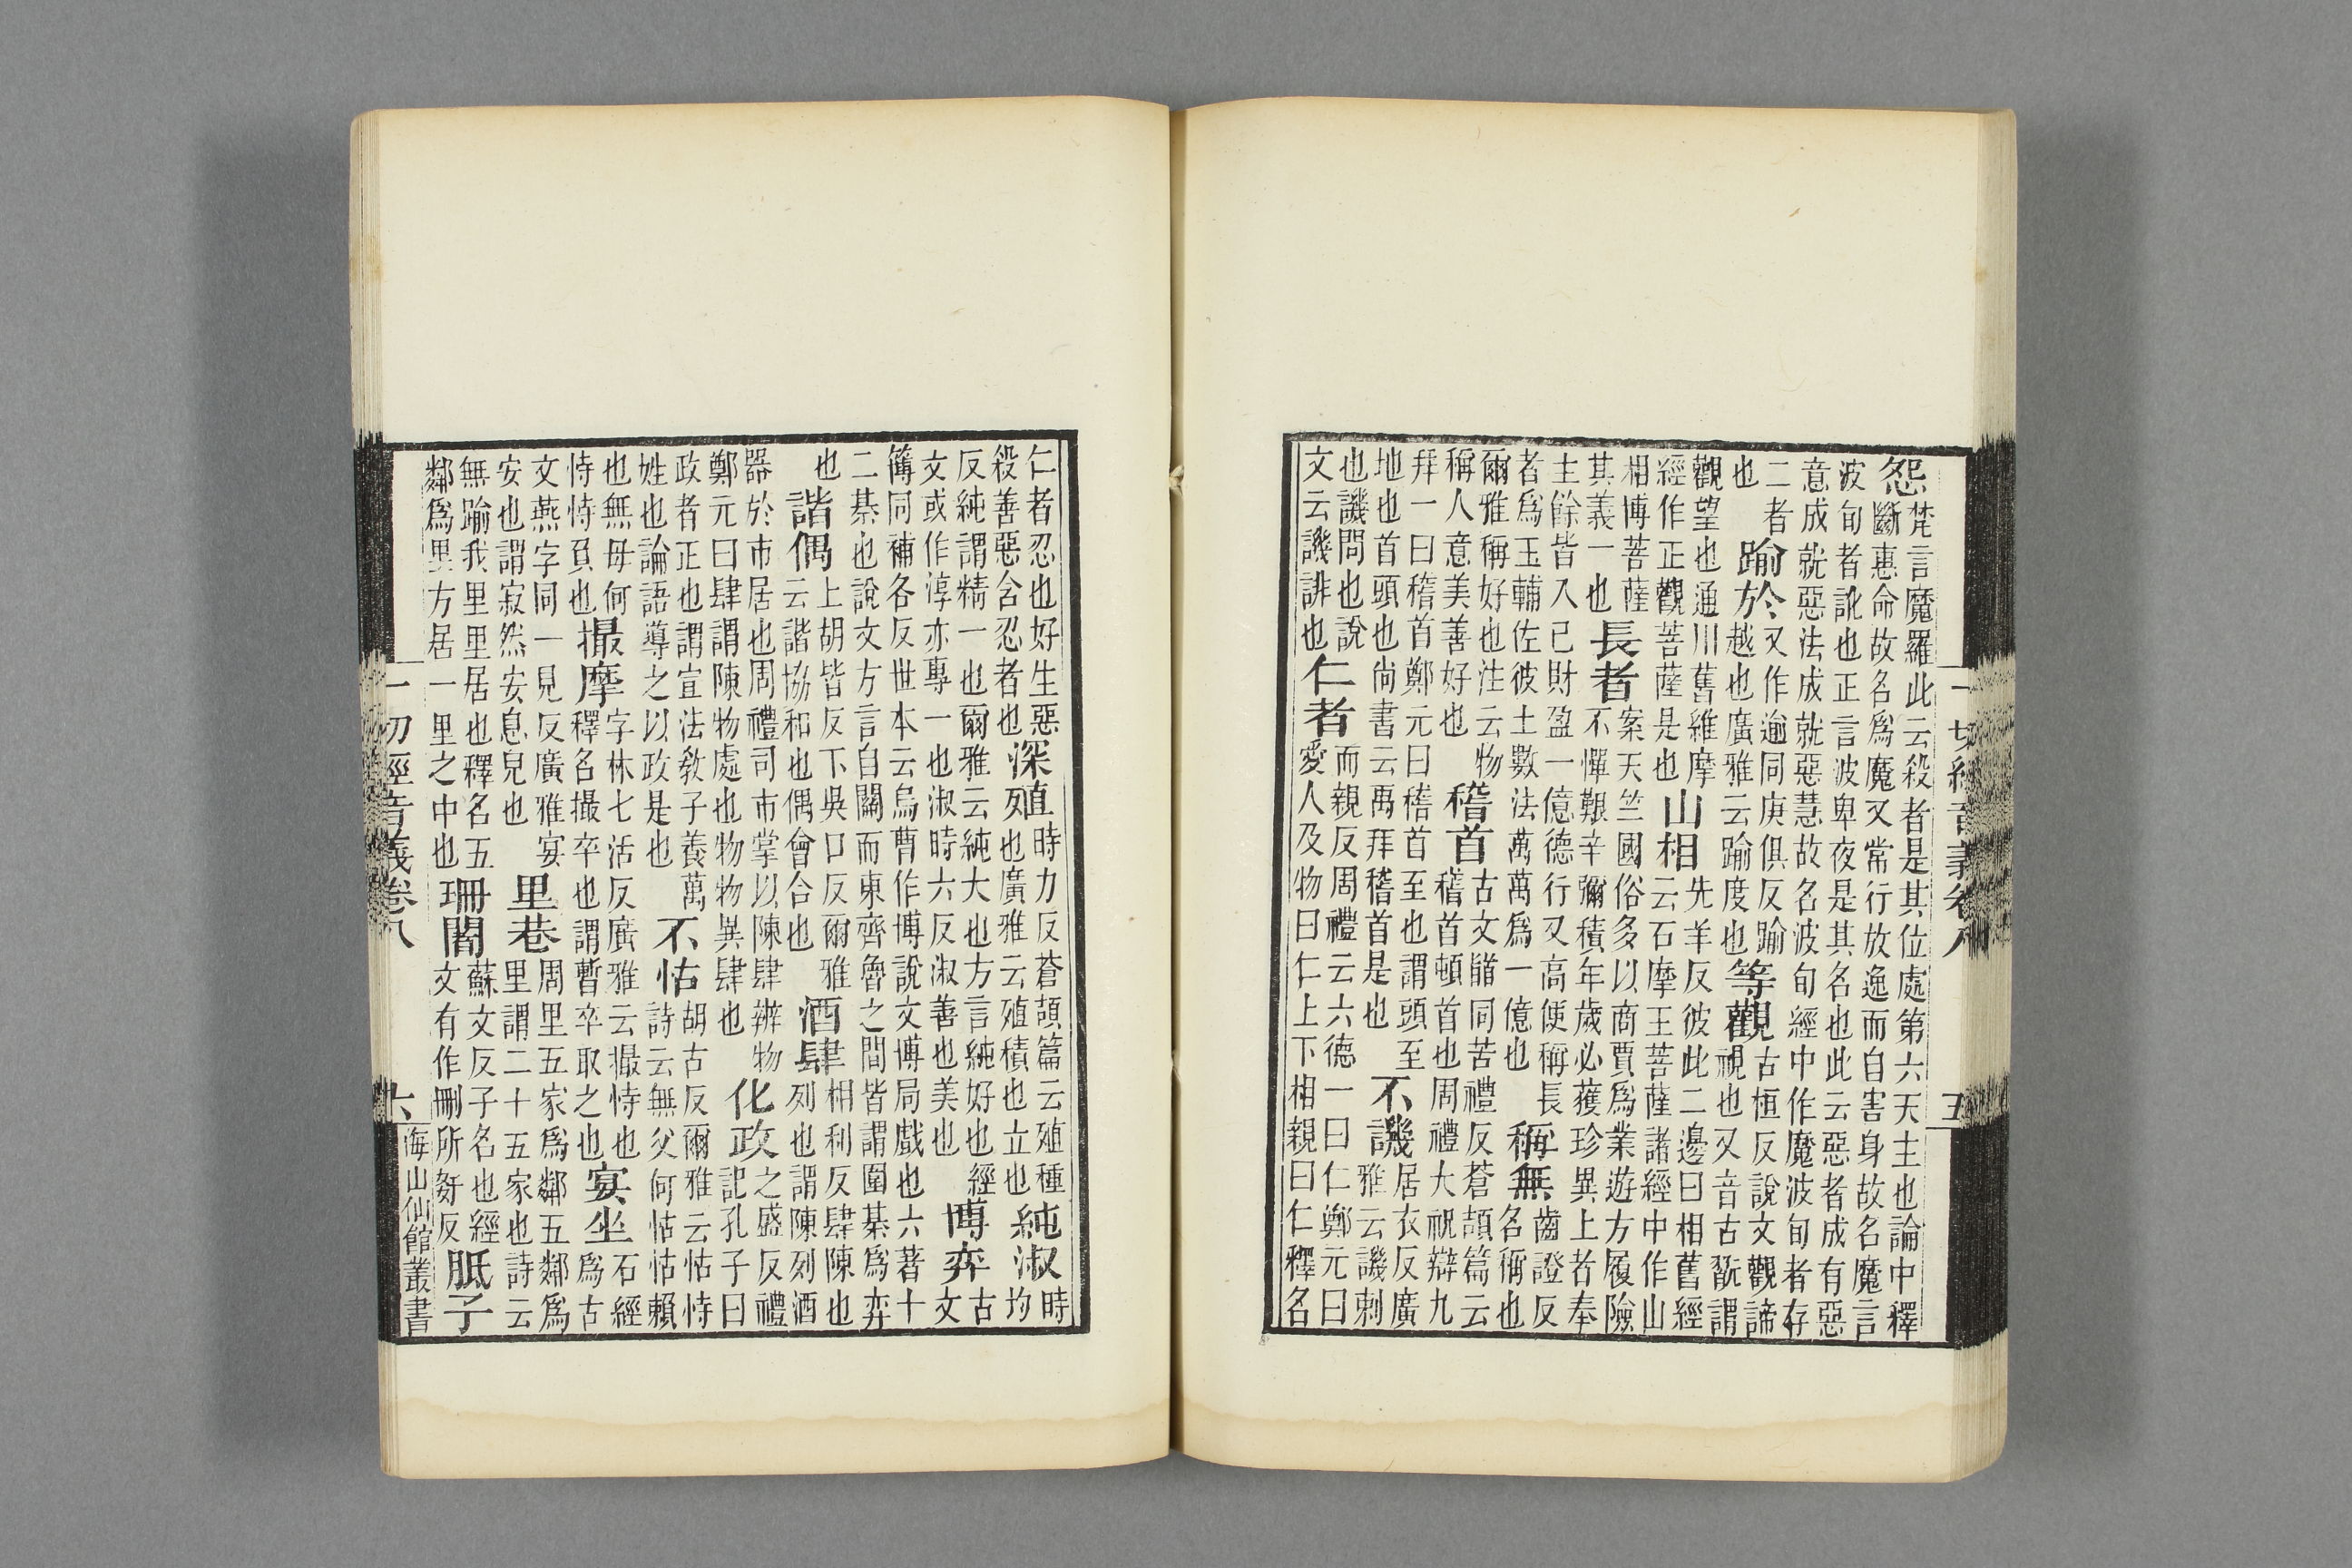 怨梵言魔羅此云殺者是其位處第六天主也論中釋斷惠命故名爲魔又常行放逸而自害身故名魔言
波旬者訛也正言波卑夜是其名也此云惡者成有惡意成就惡法成就惡慧故名波旬經中作魔波旬者存
二者也踰於又作逾同庚俱反踰越也廣雅云踰度也等觀古桓反說文觀諦視也又音古翫謂
觀望也通川舊維摩經作正觀菩薩是也山相先羊反彼此二邊曰相舊經云石摩王菩薩諸經中作山
相博菩薩其義一也長者案天竺國俗多以商賈爲業遊方履險不憚艱辛彌積年歲必獲珍異上者奉
主餘皆入己財盈一億德行又高便稱長者爲玉輔佐彼土數法萬萬爲一億也稱無齒證反名稱也
爾雅稱好也注云物稱人意美善好也稽首古文䭫同苦禮反蒼頡篇云稽首頓首也周禮大祝辯九
拜一曰稽首鄭元曰稽首至也謂頭至地也首頭也尙書云禹拜稽首是也不譏居衣反廣雅云譏刺
也譏問也說文云譏誹也仁者而親反周禮云六德一曰仁鄭元曰愛人及物曰仁上下相親曰仁釋名
一切經音義卷八 五
仁者忍也好生惡殺善惡含忍者也深殖時力反蒼頡篇云殖種也廣雅云殖積也立也純淑時均
反純謂精一也爾雅云純大也方言純好也經文或作淳亦專一也淑時六反淑善也美也博弈古文
簙同補各反世本云烏曹作博說文博局戲也六著十二棊也說文方言自關而東齊魯之間皆謂圍棊爲弈
也諧偶上胡皆反下吳口反爾雅云諧協和也偶會合也酒肆相利反肆陳也列也謂陳列酒
器於市居也周禮司市掌以陳肆辨物鄭元曰肆謂陳物處也物物異肆也化政之盛反禮記孔子曰
政者正也謂宣法教子養萬姓也論語導之以政是也不怙胡古反爾雅云怙恃詩云無父何怙怙賴
也無母何恃恃負也撮摩字林七活反廣雅云撮持也釋名撮卒也謂暫卒取之也宴坐石經爲古
文燕字同一見反廣雅宴安也謂寂然安息皃也里巷周里五家爲鄰五鄰爲里謂二十五家也詩云
無踰我里里居也釋名五鄰爲里方居一里之中也珊闍蘇文反子名也經文有作刪所姧反胝子
一切經音義卷八 六 海山仙館叢書